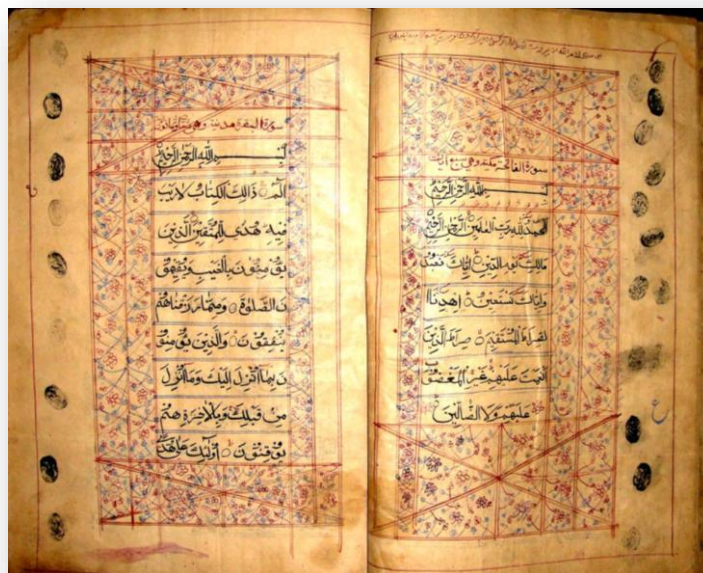 سورة الفاتحة مكية وهي سبع آيات
بسم الله الرحمن الرحيم
الحمد لله رب العلمين الرحمن الرحيم
مالك يوم الدين اياك نعبد
واياك نستعين اهدنا ا
لصراط المستقيم صراط الذين
انعمت عليهم غير المغضوب
عليهم ولا الضالين
سورة البقرة مدنية وهي
بسم الله الرحمن الرحيم
الم ذالك الكتاب لا ريب
فيه هدى للمتقين الذين
يؤمنون بالغيب ويقيمو
ن الصلوة ومما رزقناهم
ينفقون والذين يؤمنو
ن بما انزل اليك وما انزل
من قبلك وبالاخرة هم
يوقنون اولئك على هدى